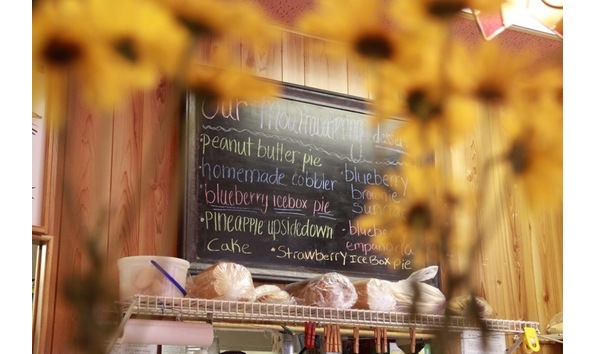 Our Mouthwatering
• peanut butter pie
homemade cobbler
• blueberry icebox pie
• Pineapple upsidedown
Cake
• Strawberry Ice Box Pie
• blueberry
brownie
Sundae
empanada